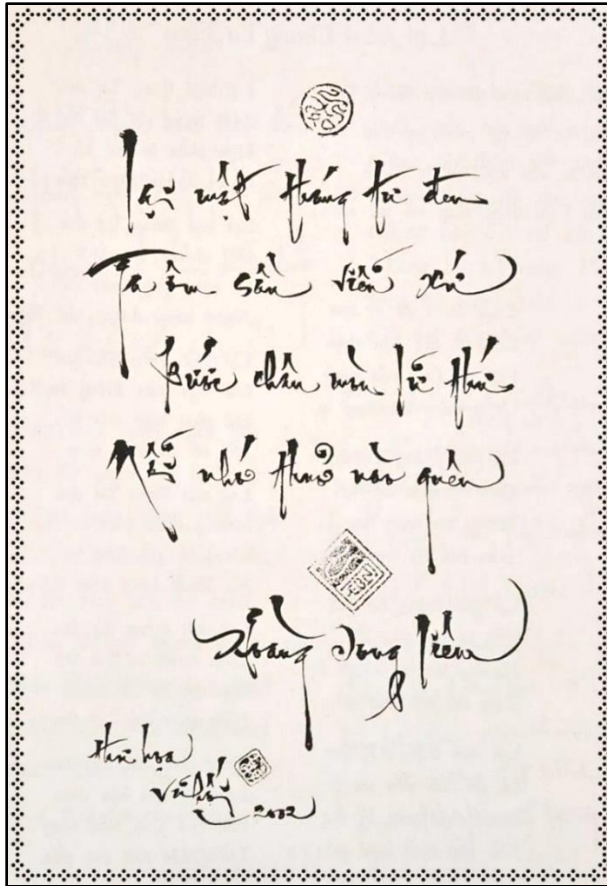 Lại một tháng tư đen
Thêm sầu viễn xứ
Bước chân mòn lữ thứ
Nỗi nhớ thuở nào quên
Hoàng Song Liêm
Thư họa
Vũ Hối
2002